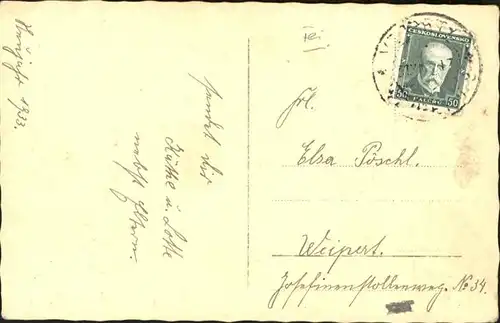 Neujahr 1933.
sendet dir
Käthe u. Lotte
nebst Eltern.
ČESKOSLOVENSKO
50 HALÉŘŮ 50
Frl.
Elsa Pöschl.
Weipert.
Josefinenstollenweg. No 34.